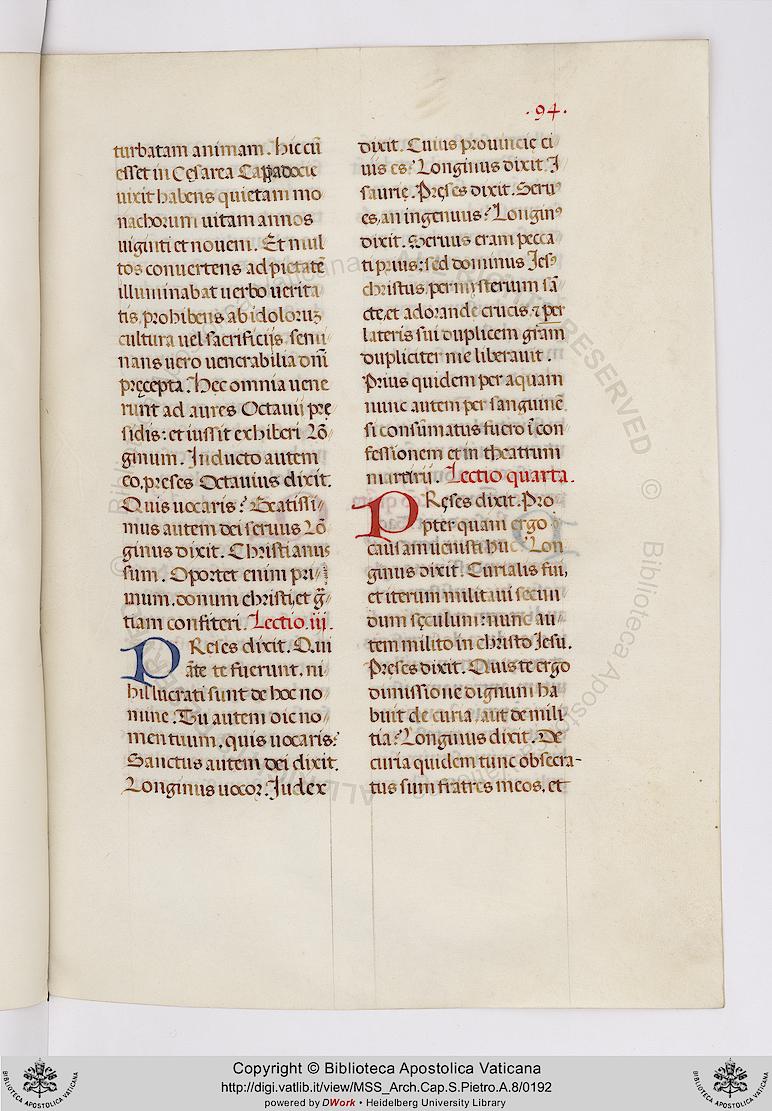 .94.
turbatam animam. Hic cū
esset in Cęsarea Cappadocie
uixit habens quietam mo
nachorum uitam annos
uiginti et nouem. Et mul
tos conuertens ad pietatē
illuminabat uerbo uerita
tis, prohibens ab idoloruꝫ
cultura uel sacrificijs. semi
nans uero uenerabilia dn̄i
pręcepta. Hec omnia uene
runt ad aures Octauij prę
sidis: et iussit exhiberi Lō
ginum. Inducto autem
eo, preses Octauius dixit.
Quis uocaris? Beatissi
mus autem dei seruus Lō
ginus dixit. Christianus
sum. Oportet enim pri
mum. donum christi, et g̃
tiam confiteri. Lectio. iij.
PReses dixit. Qui
āte te fuerunt. ni
hil lucrati sunt de hoc no
mine. Tu autem dic no
mentuum, quis uocaris?
Sanctus autem dei dixit.
Longinus uocor. Judex
dixit. Cuius prouincię ci
uis es? Longinus dixit. I
saurię. Pręses dixit. Seru⁹
es, an ingenuus? Longin⁹
dixit. Seruus eram pecca
ti prius: sed dominus Jes⁹
christus per mysterium sā
cte, et adorande crucis, ⁊ per
lateris sui duplicem gr̄am
dupliciter me liberauit.
Prius quidem per aquam
nunc autem per sanguinē.
si consūmatus fuero ī con
fessionem et in theatrum
martirij. Lectio quarta.
PRęses dixit. Pro
pter quam ergo
causam uenisti huc? Lon
ginus dixit. Curialis fui,
et iterum militaui secun
dum sęculum: nunc au
tem milito in christo Jesu.
Pręses dixit. Quis te ergo
dimissione dignum ha
buit de curia, aut de mili
tia? Longinus dixit. De
curia quidem tunc obsecra-
tus sum fratres meos, et
Copyright © Biblioteca Apostolica Vaticana
http://digi.vatlib.it/view/MSS_Arch.Cap.S.Pietro.A.8/0192
powered by DWork • Heidelberg University Library